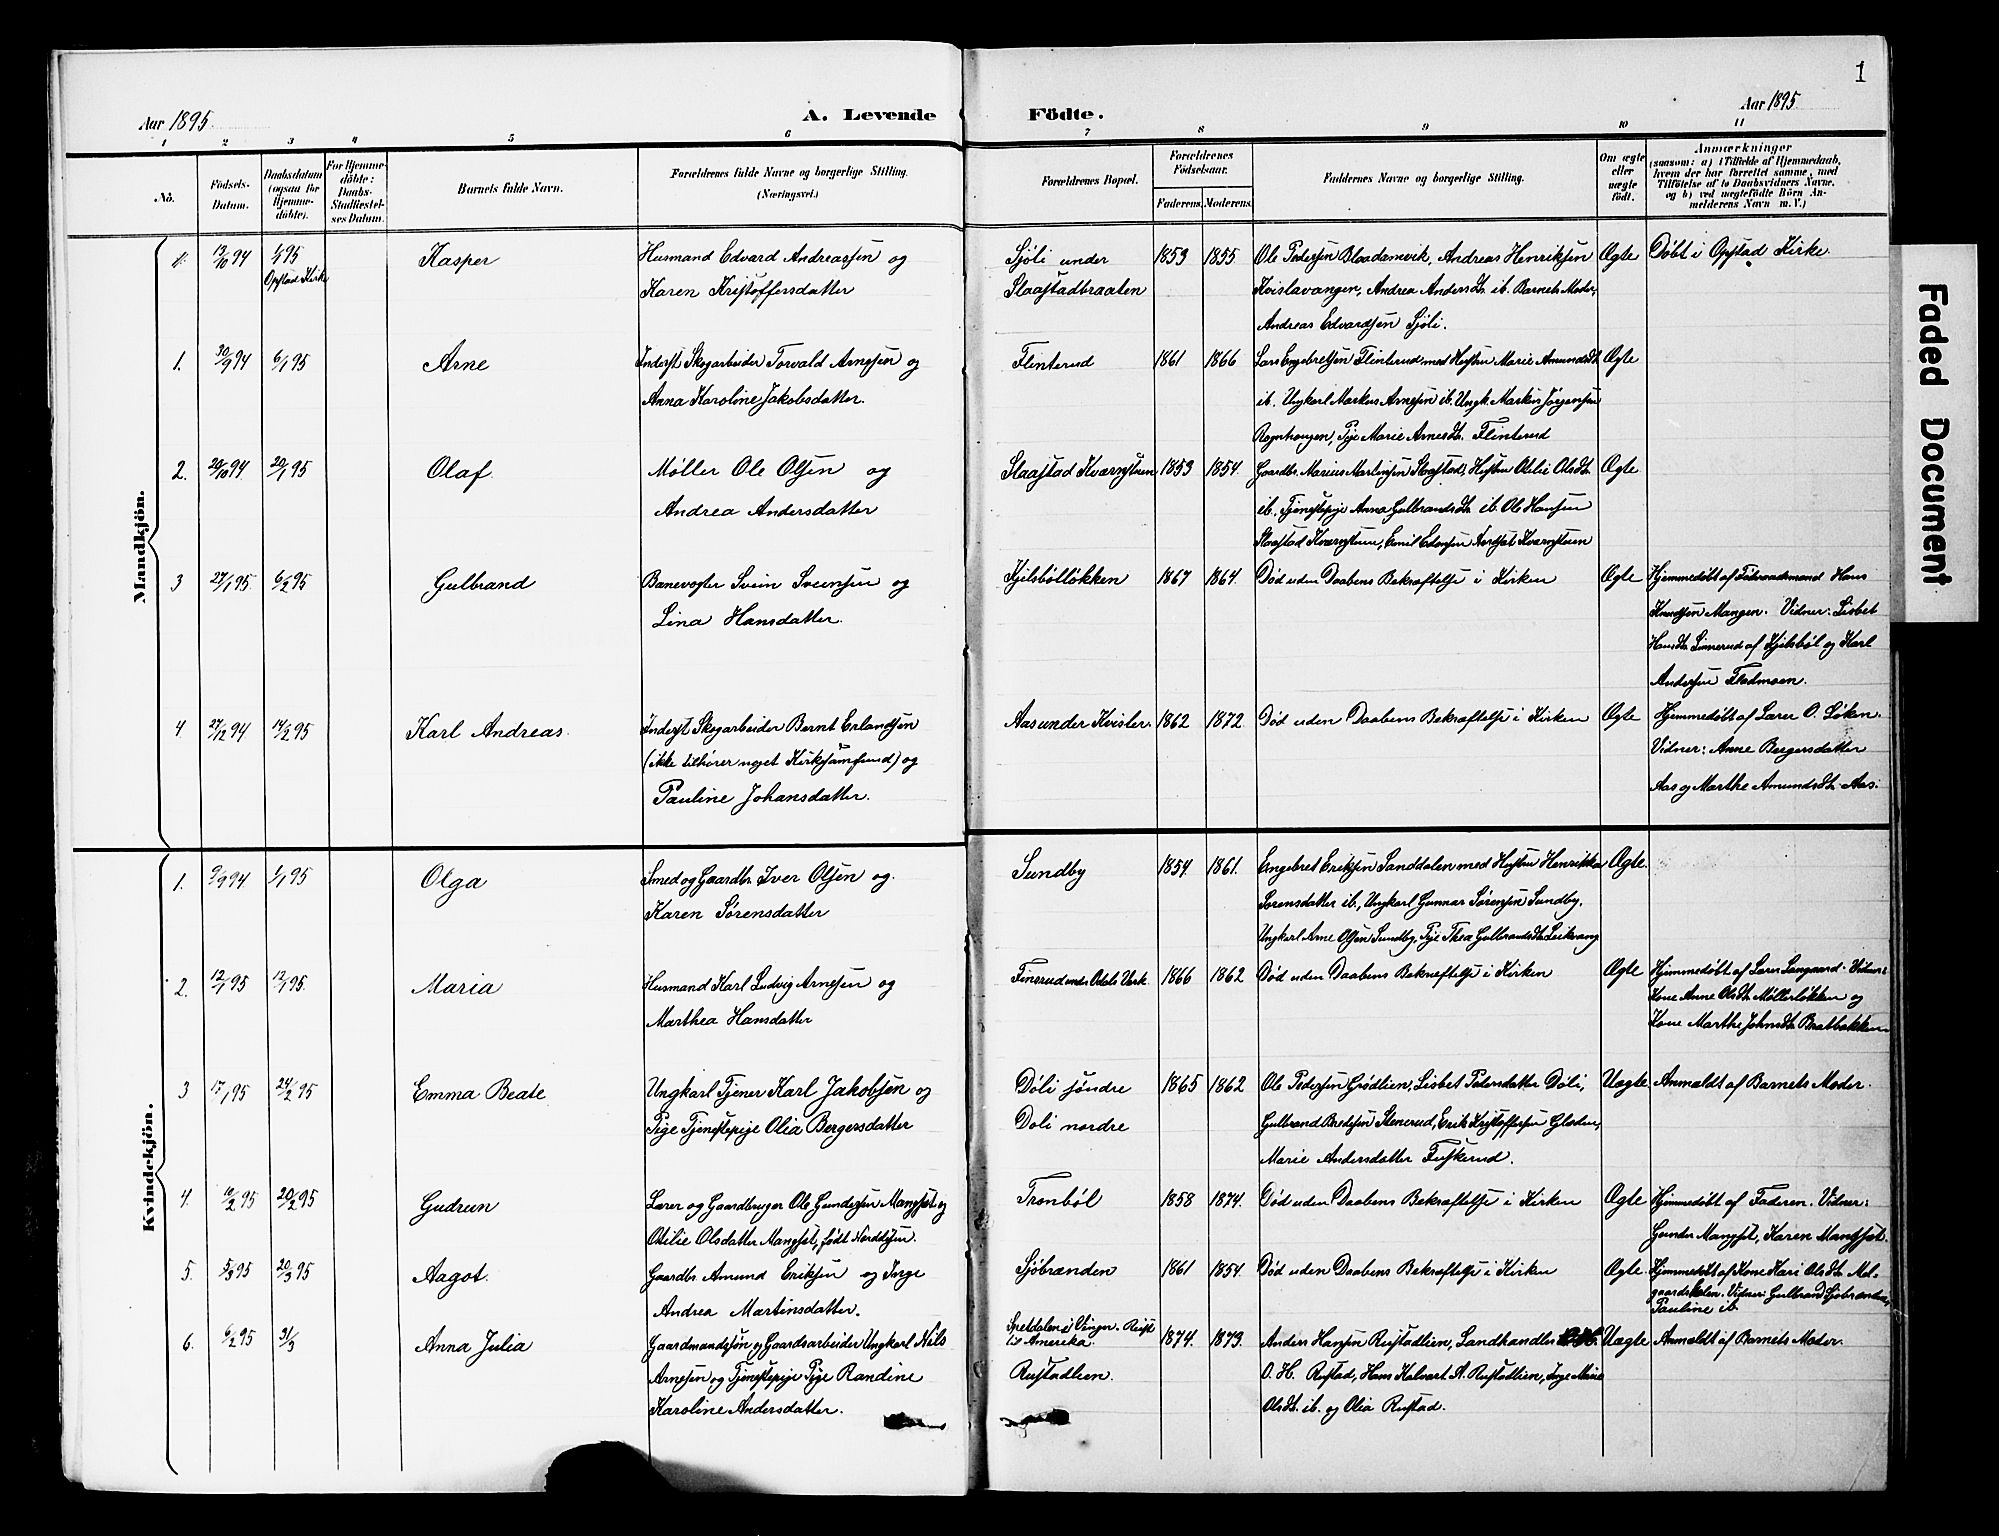 1
Aar 1895.
A. Levende
Födte.
Aar 1895
1 2 3 4 5 6 7 8 9 10 11
Nó.
Födsels-Datum.
Daabsdatum (ogsaa for Hjemmedöbte).
For Hjemmedöbte: Daabs-Stadfæstelses Datum.
Barnets fulde Navn.
Forældrenes fulde Navne og borgerlige Stilling. (Næringsvei.)
Forældrenes Bopæl.
Forældrenes Födselsaar.
Faderens. Moderens.
Faddernes Navne og borgerlige Stilling.
Om ægte eller uægte födt.
Anmærkninger
(saasom: a) i Tilfælde af Hjemmedaab, hvem der har forrettet samme, med Tilföielse af to Daabsvidners Navne, og b) ved uægtefödte Börn Anmelderens Navn m. V.)
Mandkjön.
13/10 94 1/1 95 Opstad Kirke
Kasper
Husmand Edvard Andreassen og
Karen Kristoffersdatter
Sjöli under
Slaastadbraaten
1853 1855
Ole Pedersen Bloadamsvik, Andreas Henriksen
Kvislavangen, Andrea Andersdt. ib. Barnets Moder,
Andreas Edvardsen Sjöli.
Ægte
Döbt i Opstad Kirke
1. 30/9 94 6/1 95
Arne
Inderst Skogarbeider Torvald Arnesen og
Anna Karoline Jakobsdatter.
Flinterud
1861 1866
Lars Engebretsen Flinterud med Hustru Marie Amundsdt.
ib. Ungkarl Markus Arnesen ib. Ungk. Markus Jörgensen
Rognhaugen, Pige Marie Arnesdt. Flinterud
Ægte
2. 20/10 94 20/1 95
Olaf.
Møller Ole Olsen og
Andrea Andersdatter
Slaastad Kværnstuen
1853 1854.
Gaardbr. Marius Martinsen Slaastad, Hustru Otilie Olsdt.
ib. Tjenestepige Anna Gulbrandsdt. ib. Ole Hansen
Slaastad Kværnstuen, Emil Edvardsen Kværnstuen
Ægte
3 27/1 95 6/2 95
Gulbrand
Banevogter Svein Sveinsen og
Lina Hansdatter.
Kjelsböllökken
1867 1864.
Död uden Daabens Bekræftelse i Kirken
Ægte
Hjemmedöbt af Hans
Knudsen Mangen. Vidner: Lisbet
Hansdt. Linnerud af Kjelsböl og Karl
Andersen Flodmoen.
4. 27/12 94 14/2 95
Karl Andreas.
Inderst Skogarbeider Bernt Erlandsen
(ikke tilhörer noget Kirkesamfund) og
Pauline Johansdatter.
Aas under Kvisler.
1862 1872.
Död uden Daabens Bekræftelse i Kirken
Ægte
Hjemmedöbt af Lærer O. Löken.
Vidner: Anne Bergersdatter
Aas og Marthe Amundsdt. Aas.
Kvindekjön.
1. 9/9 94 1/1 95
Olga
Smed og Gaardbr. Iver Olsen og
Karen Sørensdatter
Sundby
1854. 1861.
Engebret Eriksen Sanddalen med Hustru Henrikka
Sørensdatter ib., Ungkarl Gunnar Sørensen Sundby.
Ungkarl Arne Olsen Sundby, Pige Thea Gulbrandsdt. Leikvang
Ægte.
2. 12/1 95 12/1 95.
Maria
Husmand Karl Ludvig Arnesen og
Marthea Hansdatter
Finsrud under Odals Værk.
1866 1862
Död uden Daabens Bekræftelse i Kirken
Ægte
Hjemmedöbt af Lærer Langaard. Vidner:
Kone Anne Olsdt. Møllerløkken og
Kone Marthe Johnsdt. Bratbakken
3 17/1 95 24/2 95
Emma Beate
Ungkarl Tjener Karl Jakobsen og
Pige Tjenestepige Olia Bergersdatter
Döli söndre
Döli nordre
1865 1862
Ole Pedersen Grödlien, Lisbet Pedersdatter Döli,
Gulbrand Bredesen Stenerud, Erik Kristoffersen
Marie Andersdatter Fuskerud.
Uægte
Anmeldt af Barnets Moder.
4. 10/2 95 20/2 95
Gudrun
Lærer og Gaardbruger Ole Gundersen Mangset og
Otilie Olsdatter Mangset, født Nordlisen.
Tronböl
1858 1874.
Död uden Daabens Bekræftelse i Kirken
Ægte
Hjemmedöbt af Faderen. Vidner:
Gunder Mangset, Karen Mangset.
5. 5/3 95 20/3 95
Aagot.
Gaardbr. Amund Eriksen og Inge
Andrea Martinsdatter.
Sjöbrænden
1861 1854.
Död uden Daabens Bekræftelse i Kirken
Ægte
Hjemmedöbt af Kone Kari Olsdt. Mel-
gaardsholen. Vidner: Gulbrand Sjöbrænden,
Pauline ib.
6. 6/2 95 31/3
Anna Julia
Gaardmandssön og Gaardsarbeider Ungkarl Nils
Arnesen og Tjenestepige Pige Randine
Karoline Andersdatter.
Speldalen i Vinger. Reist
til Amerika.
Rustadlien.
1874. 1873.
Anders Hansen Rustadlien, Landhandler
O. H. Rustad, Hans Kalvart A. Rustadlien, Inge Marie
Olsdt. ib. og Olia Rustad.
Uægte
Anmeldt af Barnets Moder.
Faded Document